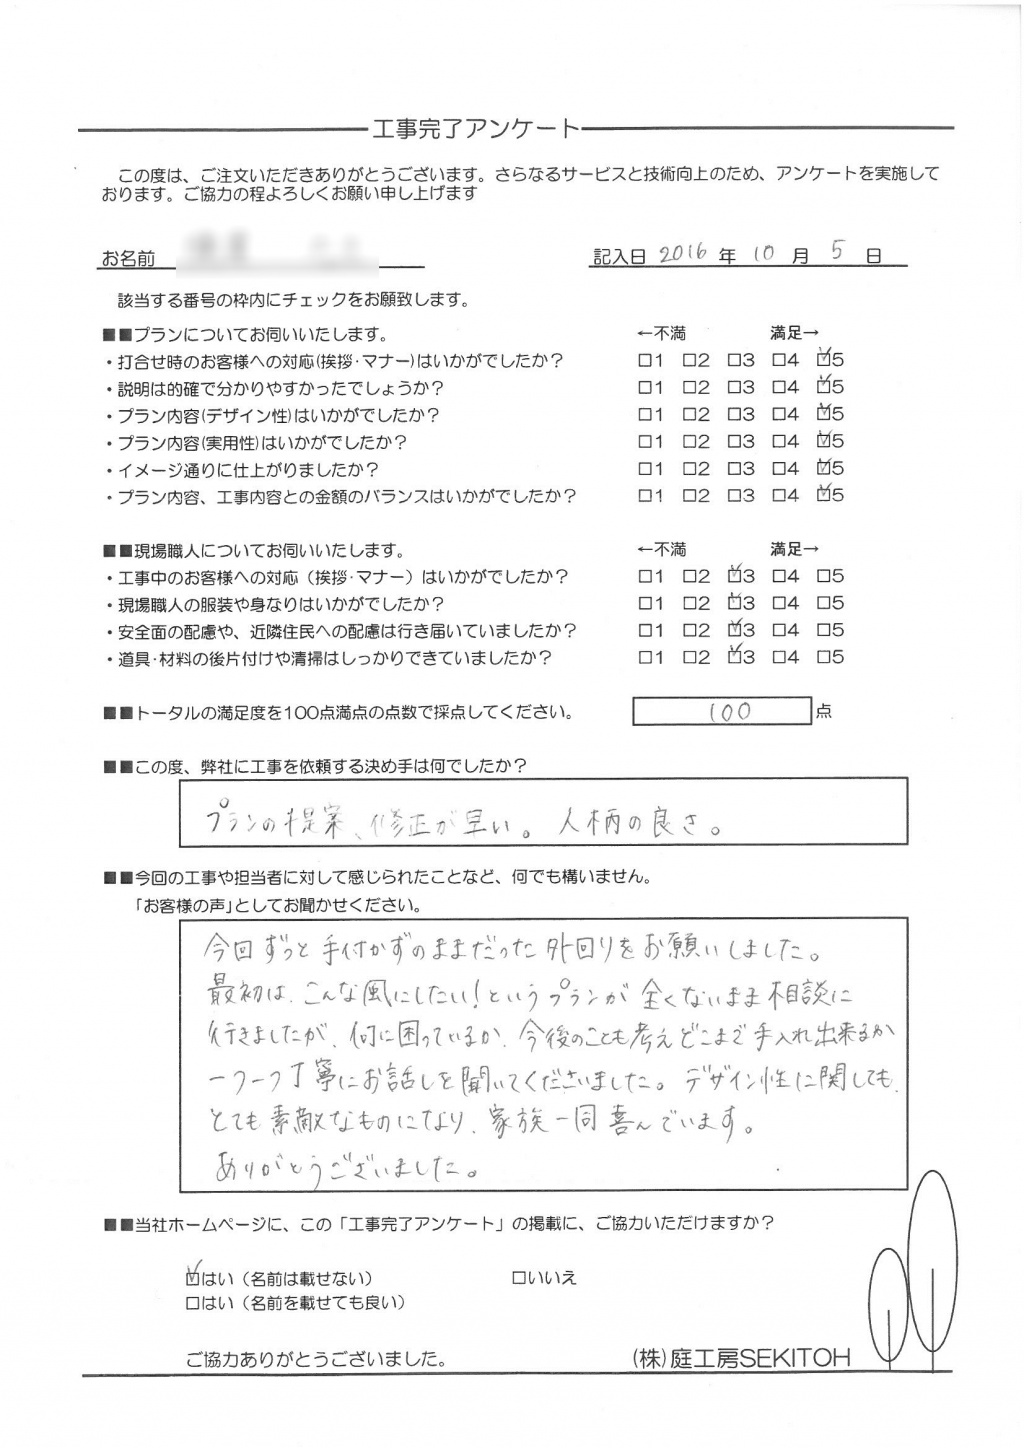 工事完了アンケート
この度は、ご注文いただきありがとうございます。さらなるサービスと技術向上のため、アンケートを実施して
おります。ご協力の程よろしくお願い申し上げます
お名前 記入日 2016 年 10 月 5 日
該当する番号の枠内にチェックをお願致します。
■■プランについてお伺いいたします。 ←不満 満足→
・打合せ時のお客様への対応(挨拶・マナー)はいかがでしたか? □1 □2 □3 □4 ☑5
・説明は的確で分かりやすかったでしょうか? □1 □2 □3 □4 ☑5
・プラン内容(デザイン性)はいかがでしたか? □1 □2 □3 □4 ☑5
・プラン内容(実用性)はいかがでしたか? □1 □2 □3 □4 ☑5
・イメージ通りに仕上がりましたか? □1 □2 □3 □4 ☑5
・プラン内容、工事内容との金額のバランスはいかがでしたか? □1 □2 □3 □4 ☑5
■■現場職人についてお伺いいたします。 ←不満 満足→
・工事中のお客様への対応(挨拶・マナー)はいかがでしたか? □1 □2 ☑3 □4 □5
・現場職人の服装や身なりはいかがでしたか? □1 □2 ☑3 □4 □5
・安全面の配慮や、近隣住民への配慮は行き届いていましたか? □1 □2 ☑3 □4 □5
・道具・材料の後片付けや清掃はしっかりできていましたか? □1 □2 ☑3 □4 □5
■■トータルの満足度を100点満点の点数で採点してください。 100 点
■■この度、弊社に工事を依頼する決め手は何でしたか?
プランの提案、修正が早い。人柄の良さ。
■■今回の工事や担当者に対して感じられたことなど、何でも構いません。
「お客様の声」としてお聞かせください。
今回ずっと手付かずのままだった外回りをお願いしました。
最初は、こんな風にしたい!というプランが全くないまま相談に
行きましたが、何に困っているか、今後のことも考えどこまで手入れ出来るか
一つ一つ丁寧にお話しを聞いてくださいました。デザイン性に関しても、
とても素敵なものになり、家族一同喜んでいます。
ありがとうございました。
■■当社ホームページに、この「工事完了アンケート」の掲載に、ご協力いただけますか?
☑はい(名前は載せない) □いいえ
□はい(名前を載せても良い)
ご協力ありがとうございました。 (株)庭工房SEKITOH